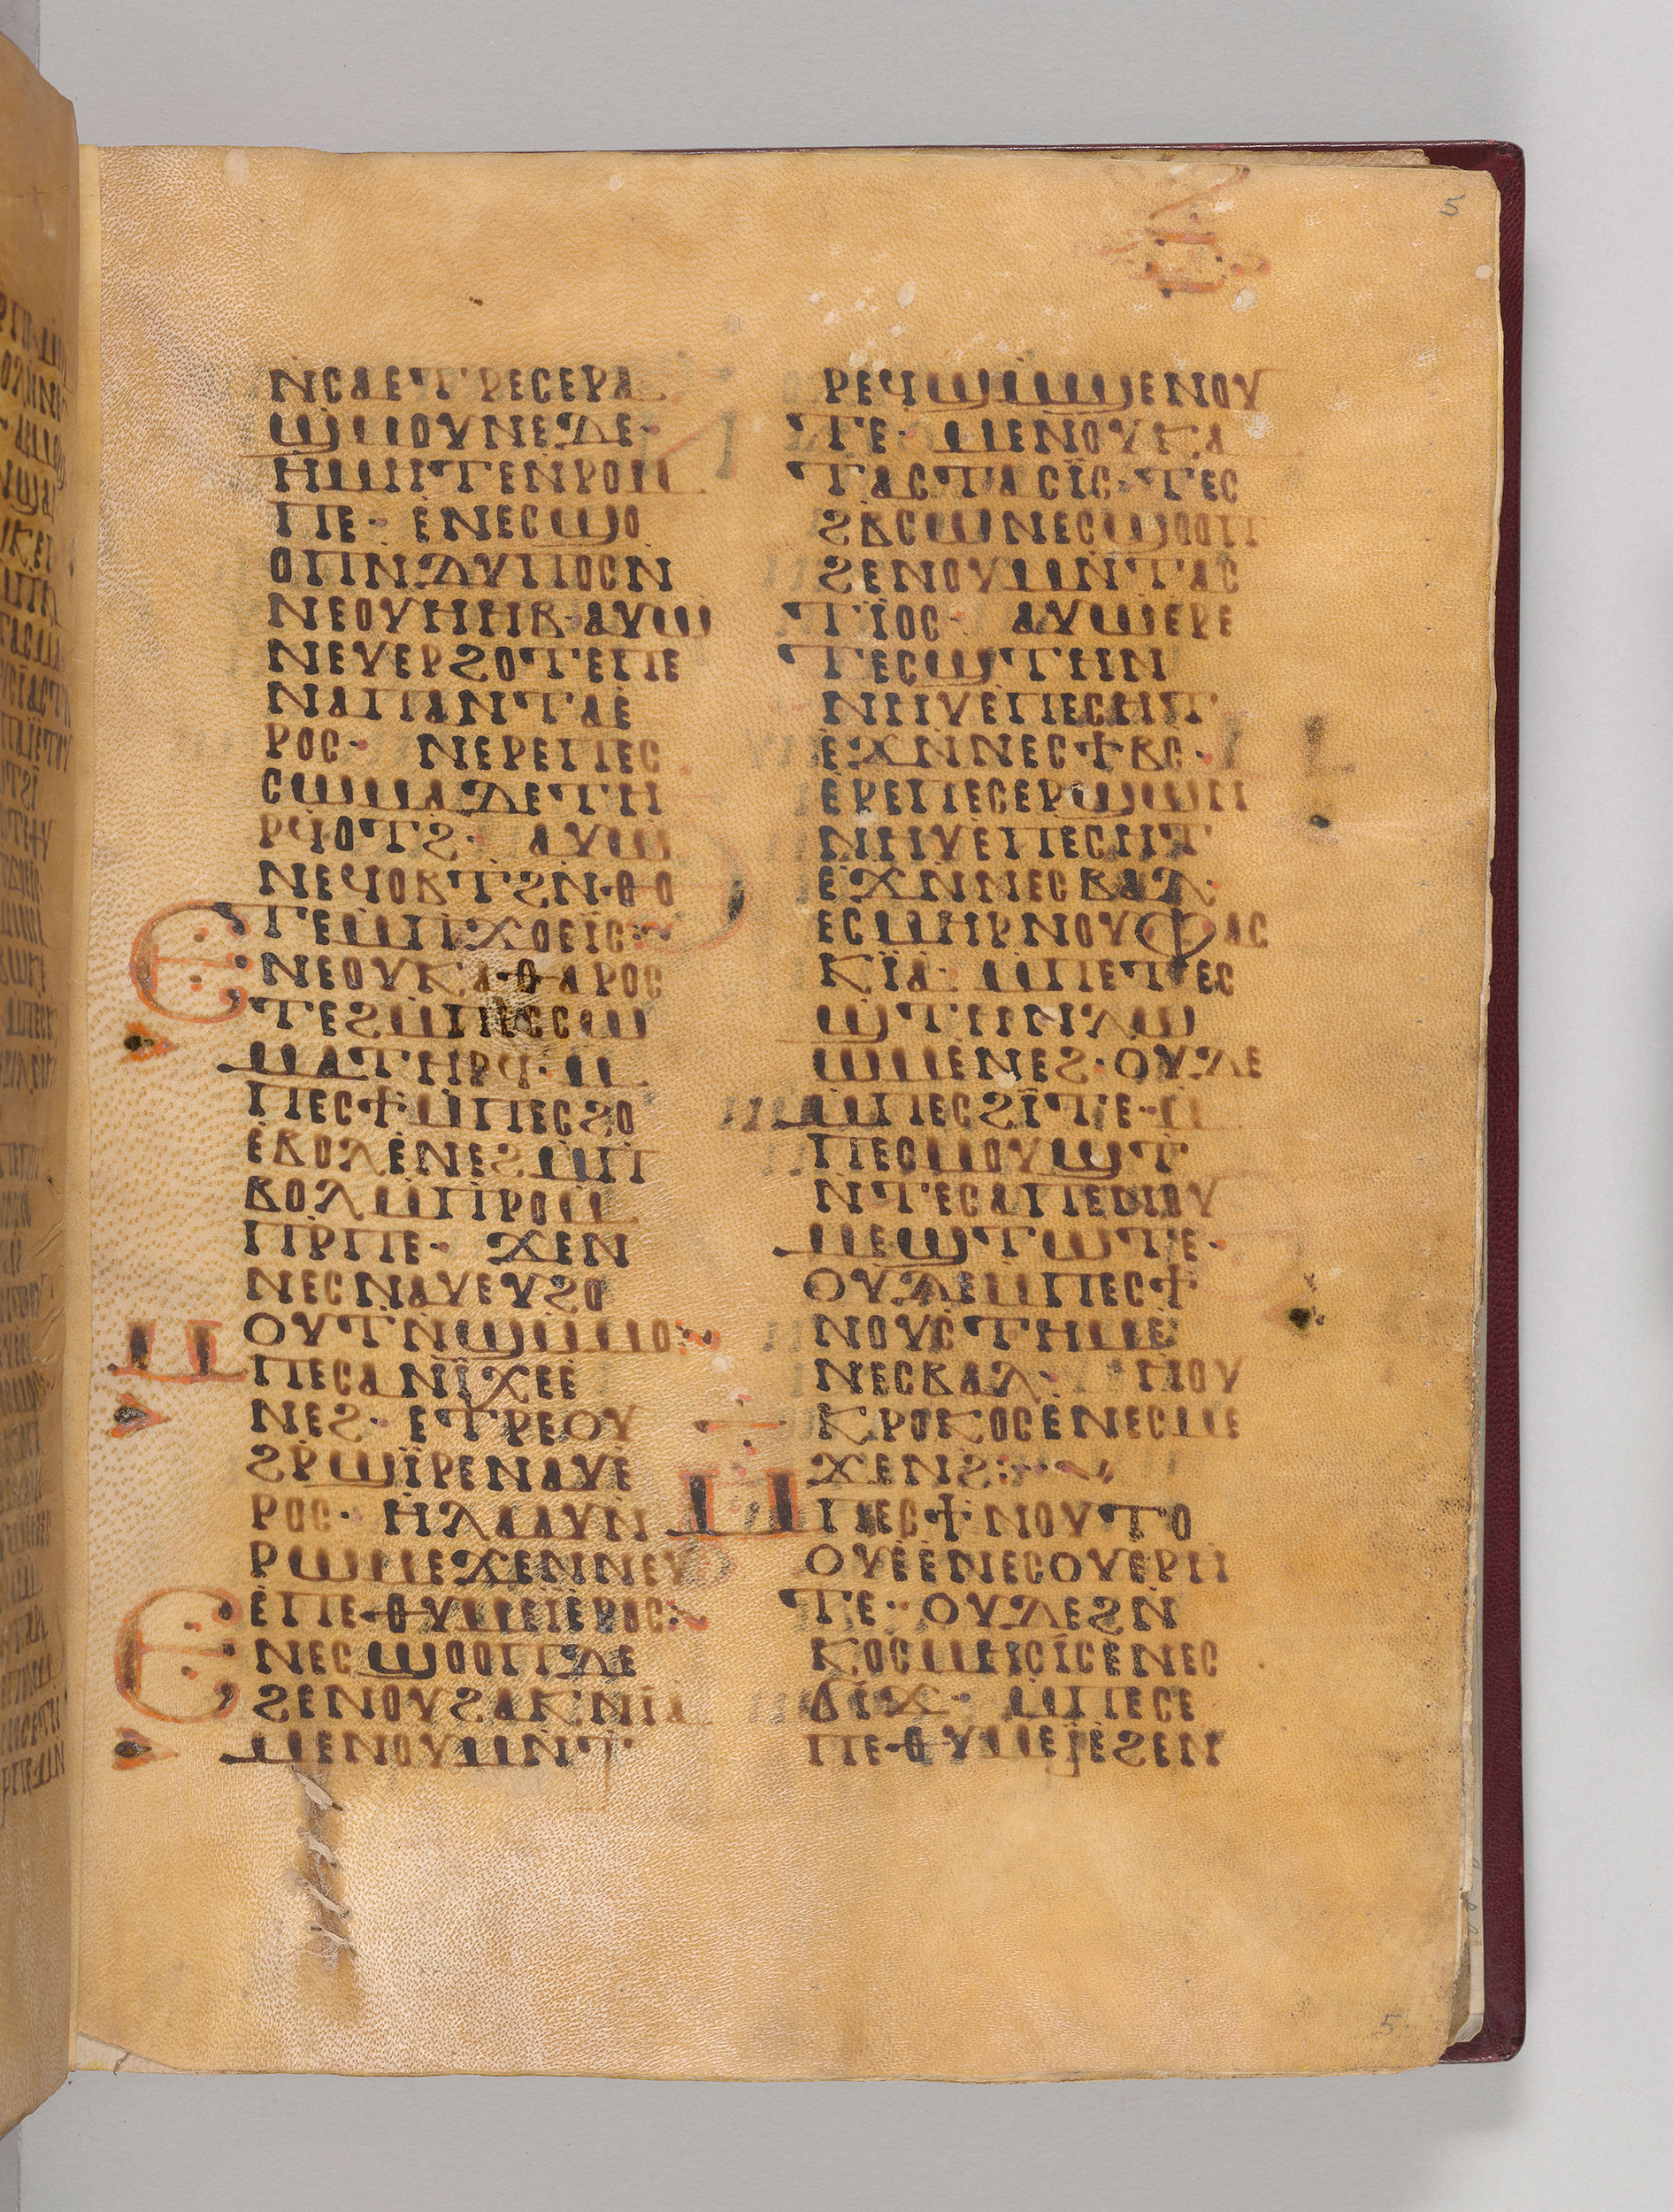 ⲛⲥⲁⲉⲧⲣⲉⲥⲉⲣⲁ
ϣⲙⲟⲩⲛⲉⲇⲉ·
ⲏⲙⲏⲧⲉⲛⲣⲟⲙ
ⲡⲉ· ⲉⲛⲉⲥϣⲟ
ⲟⲡⲛⲇⲩⲡⲟⲥⲛ
ⲛⲉⲟⲩⲏⲏⲃ·ⲁⲩⲱ
ⲛⲉⲩⲉⲣϩⲟⲧⲉⲡⲉ
ⲛⲁⲡⲁⲛⲧⲁⲉ
ⲣⲟⲥ· ⲛⲉⲣⲉⲡⲉⲥ
ⲥⲱⲙⲁⲇⲉⲧⲏ
ⲣϥⲟⲧϩ· ⲁⲩⲱ
ⲛⲉϥⲟⲃⲧϩⲛⲑⲟ
ⲧⲉⲙⲡϫⲟⲉⲓ̈ⲥ:
Ⲉⲛⲉⲟⲩⲕⲁⲑⲁⲣⲟⲥ
ⲧⲉϩⲙⲡⲉⲥⲥⲱ
ⲙⲁⲧⲏⲣϥ·ⲙ
ⲡⲉⲥϯⲙⲡⲉⲥϩⲟ
ⲉⲃⲟⲗⲉⲛⲉϩⲙⲡ
ⲃⲟⲗⲙⲡⲣⲟⲙ
ⲡⲣⲡⲉ· ϫⲉⲛ
ⲛⲉⲥⲛⲁⲩⲉⲩϩⲟ
ⲟⲩⲧⲛϣⲙⲙⲟ:
Ⲙⲡⲉⲥⲁⲛⲓ̈ϫⲉⲉ
ⲛⲉϩ· ⲉⲧⲣⲉⲟⲩ
ϩⲣϣⲓ̈ⲣⲉⲛⲁⲩⲉ
ⲣⲟⲥ· ⲏⲗⲁⲁⲩⲛ
ⲣⲱⲙⲉϫⲉⲛⲛⲉⲩ
ⲉⲡⲉⲑⲩⲙⲉⲓ̈ⲉⲣⲟⲥ:
Ⲉⲛⲉⲥϣⲟⲟⲡⲇⲉ
ϩⲉⲛⲟⲩϩⲁⲕⲛⲓ̈ⲁ
ⲙⲉⲛⲟⲩⲙⲛⲧ
ⲣⲉϥϣⲙϣⲉⲛⲟⲩ
ⲧⲉ· ⲙⲉⲛⲟⲩⲕⲁ
ⲧⲁⲥⲧⲁⲥⲓ̈ⲥ· ⲧⲉⲥ
ϩⲃⲥⲱⲛⲉⲥϣⲟⲟⲡ
ϩⲉⲛⲟⲩⲙⲛⲧⲁⲥ
ⲧⲓ̈ⲟⲥ· ⲁⲩⲱⲉⲣⲉ
ⲧⲉⲥϣⲧⲏⲛ
ⲛⲏⲩⲉⲡⲉⲥⲏⲧ
ⲉϫⲛⲛⲉⲥϯⲃⲥ·
ⲉⲣⲉⲡⲉⲥⲉⲣϣⲱⲛ
ⲛⲏⲩⲉⲡⲉⲥⲏⲧ
ⲉϫⲛⲛⲉⲥⲃⲁⲗ·
ⲉⲥⲙⲏⲣⲛⲟⲩⲫⲁⲥ
ⲕⲓ̈ⲁ· ⲙⲡⲉⲧⲉⲥ
ϣⲧⲏⲛⲗⲱ
ⲱⲙⲉⲛⲉϩ·ⲟⲩⲇⲉ
ⲙⲡⲉⲥϩⲓ̈ⲧⲉ·ⲙ
ⲡⲉⲥⲙⲟⲩϣⲧ
ⲛⲧⲉⲥⲁⲡⲉⲙⲟⲩ
ⲙⲉϣⲧⲱⲧⲉ·
ⲟⲩⲇⲉⲙⲡⲉⲥϯ
ⲛⲟⲩⲥⲧⲏⲙⲉ
ⲛⲉⲥⲃⲁⲗ· ⲛⲟⲩ
ⲕⲣⲟⲕⲟⲥⲉⲛⲉⲥⲙⲉ
ϫⲉⲛϩ:
Ⲙⲡⲉⲥϯⲛⲟⲩⲧⲟ
ⲟⲩⲉⲉⲛⲉⲥⲟⲩⲉⲣⲏ
ⲧⲉ· ⲟⲩⲇⲉϩⲛ
ⲕⲟⲥⲙⲉⲓⲥⲓ̈ⲥⲉⲛⲉⲥ
ϭⲓϫ· ⲙⲡⲉⲥⲉ
ⲡⲉⲑⲩⲙⲉⲓⲉϩⲉⲛ
5
5